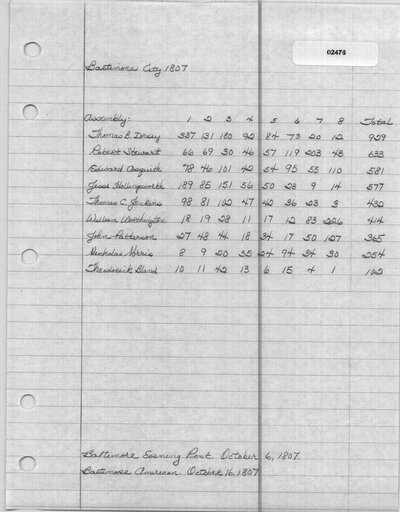 02476
Baltimore City 1807
Assembly: 1 2 3 4 5 6 7 8 Total
Thomas B. Dorsey 337 131 180 92 84 73 20 12 929
Robert Stewart 66 69 30 46 57 119 203 43 633
Edward Asquith 78 46 101 42 54 95 55 110 581
Jesse Hollingsworth 189 85 151 56 50 23 9 14 577
Thomas C. Jenkins 98 81 102 47 42 36 23 3 432
William Worthington 18 19 28 11 17 12 83 226 414
John Patterson 27 48 44 18 34 17 50 127 365
Nicholas Norris 8 9 20 35 24 94 34 30 254
Theodorick Bland 10 11 42 13 6 15 4 1 102
Baltimore Evening Post. October 6, 1807.
Baltimore American. October 16, 1807